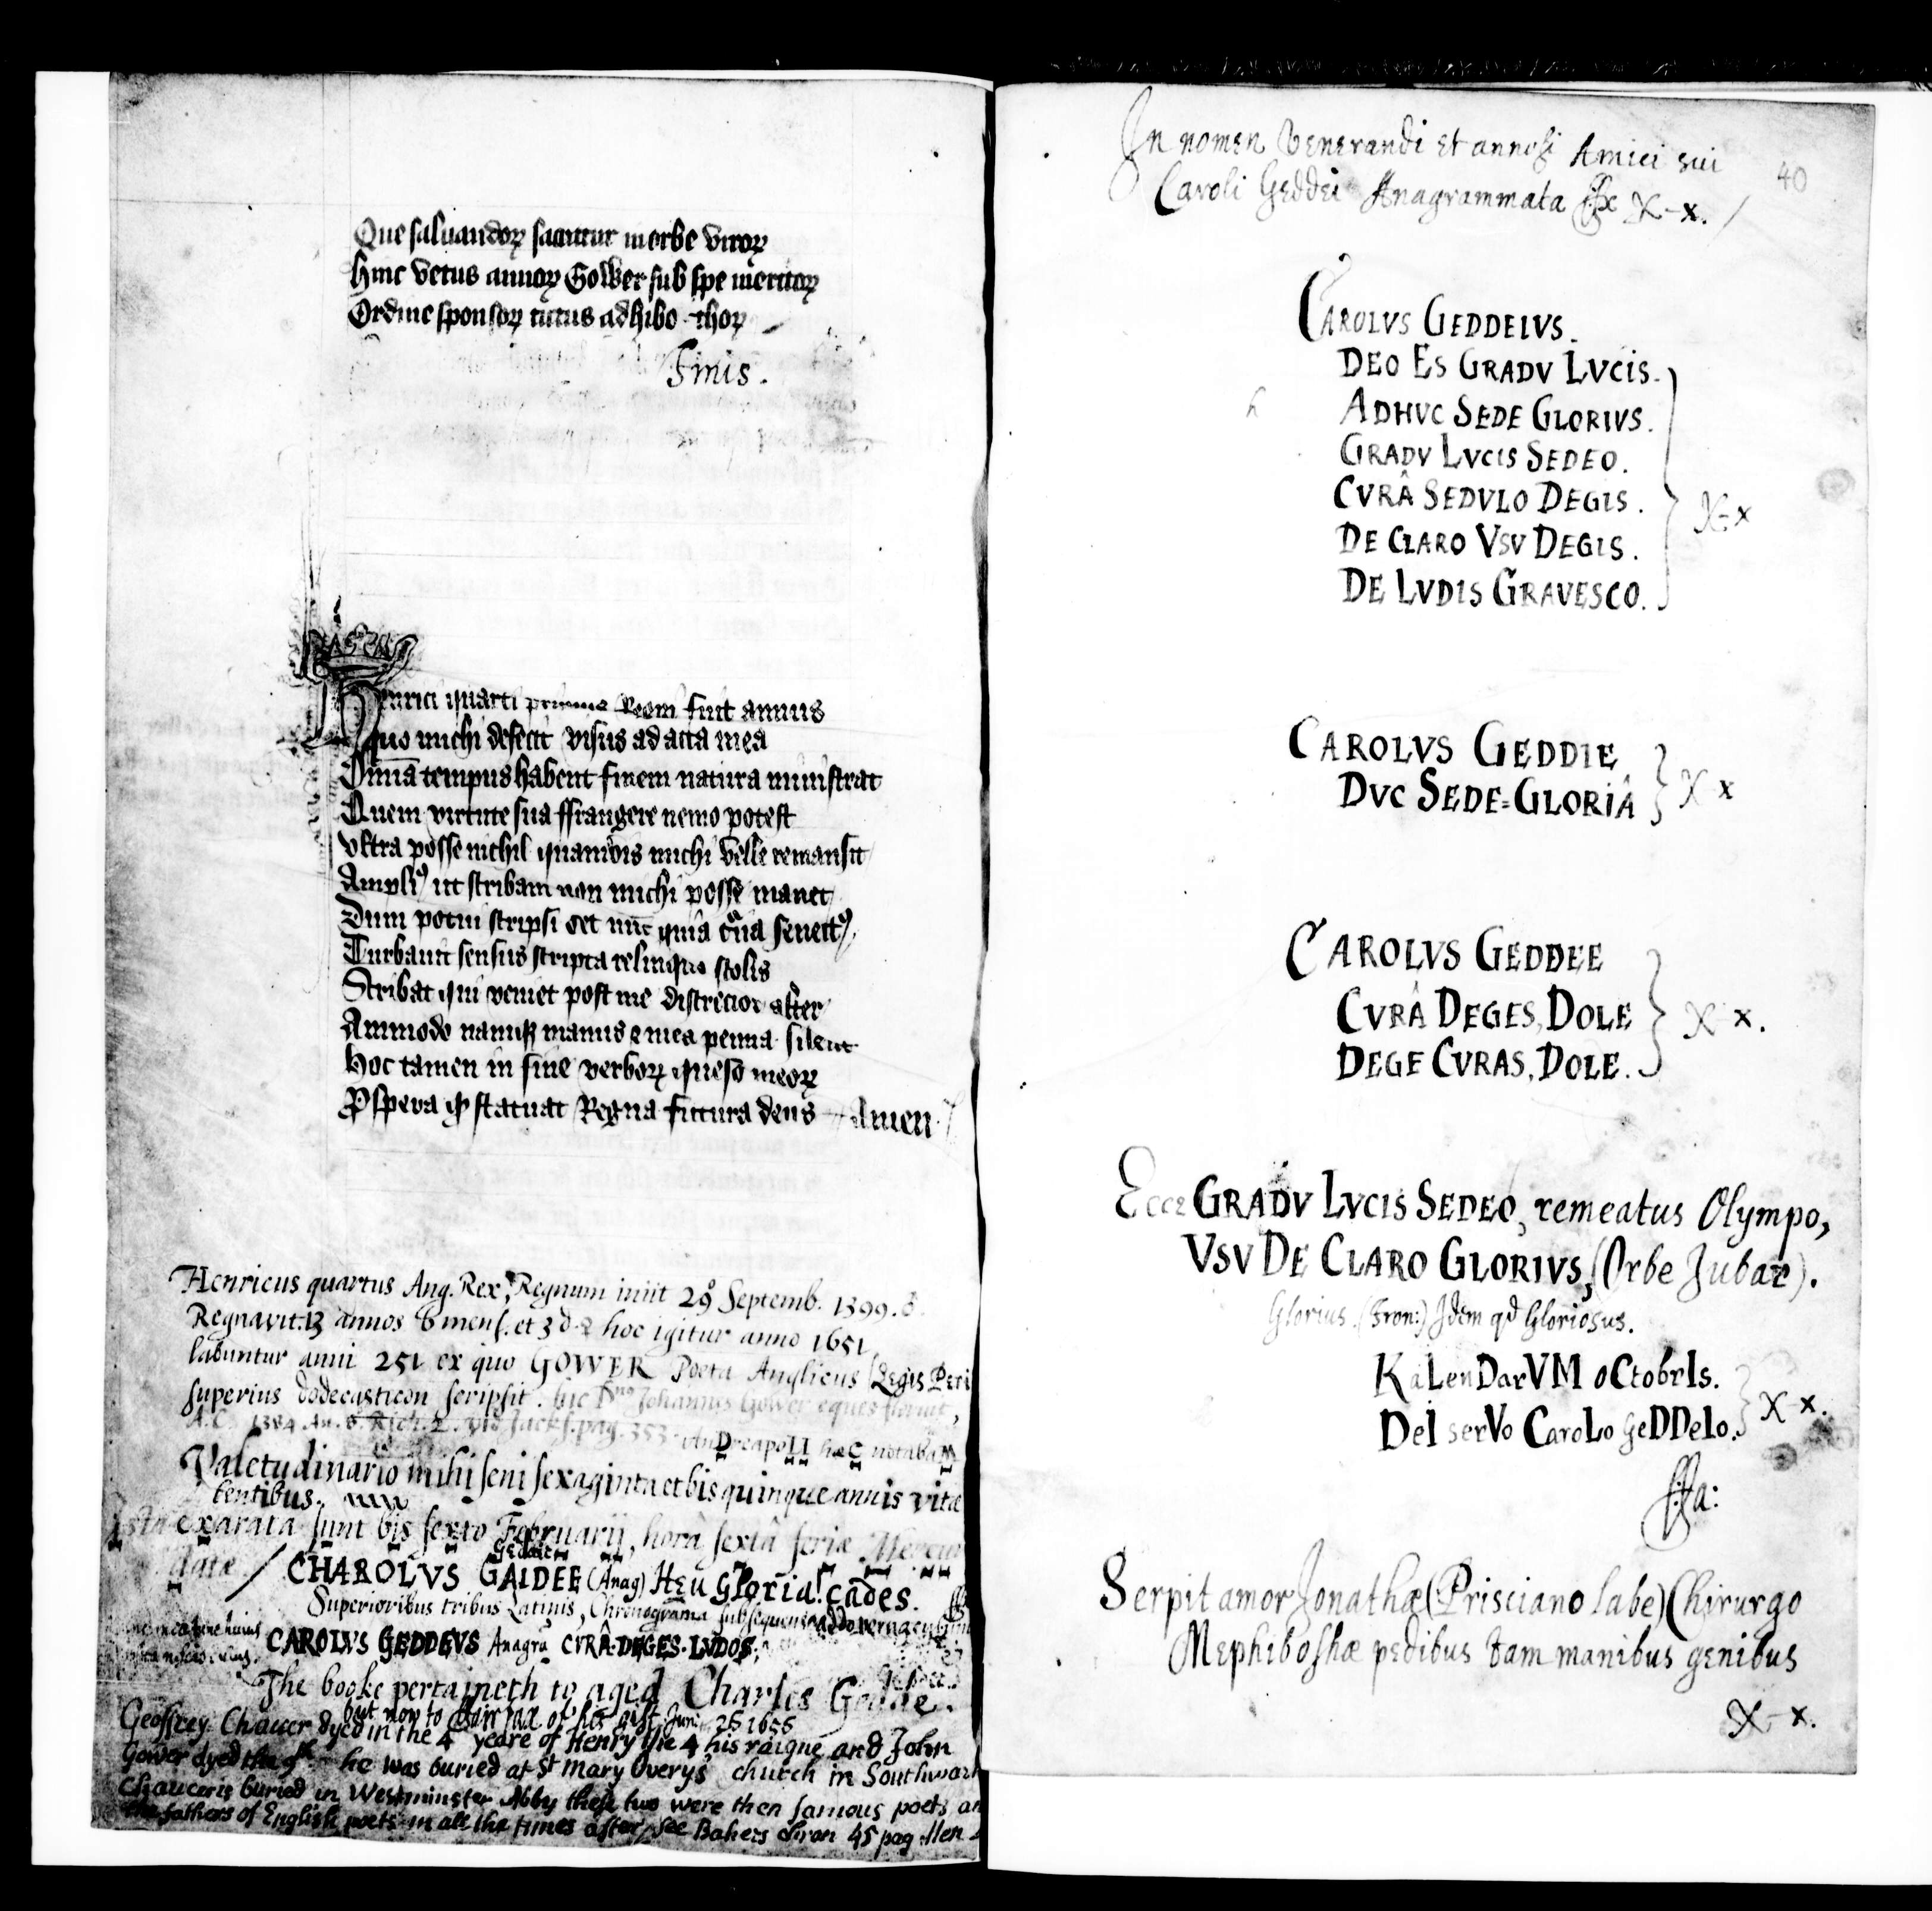 Que saluandoꝝ sacrꝛtur in orbe viroꝝ
Hinc vetus annoꝝ Gower sub spe meritoꝝ
Ordine sponsoꝝ tutus adhibo thoꝝ
Finis.
Henrici quarti primus Regni fuit annus
Quo michi defecit visus ad acta mea
Om̄ia tempus habent finem natura ministrat
Quem virtute sua ffrangere nemo potest
Vltra posse nichil quamvis michi velle remansit
Ampliꝰ ut scribam non michi posse manet
Dum potui scripsi set nūc quia cᵘua senectꝰ
Turbauit sensus scripta relinquo scolis
Scribat qui veniet post me discrecior alter
Ammodo namqꝫ manus et mea penna silent
Hoc tamen in fine verboꝝ queso meoꝝ
Ꝓspera qꝫ statuat Regna futura deus Amen
Henricus quartus Ang. Rex, Regnum iniit 29º Septemb. 1399.
Regnavit. 13 annos 6 mens. et 3 d. hoc igitur anno 1651
labuntur anni 251 ex quo GOWER Poeta Anglicus (Regis
superius dodecasticon scripsit. hic Dⁿᵘˢ Johannes Gower eques floruit,
A.C. 1384. An. 8. Rich. 2. vid Jacks. pag. 353. AnDreapoLI haeC notabaM
Valetudinario mihi seni sexaginta et bis quinque annis vitæ
bentibus.
Ista exarata sunt bis sexto Februarij, horâ sextâ feriæ Mercu
CHAROLVS GAIDEE (Anag) Heu gloria! cades.
Superioribus tribus Latinis, Chronograma subsequens addo vernacul
CAROLVS GEDDEVS Anagra CVRÂ DEGES LVDOS,
The booke pertajneth to aged Charles Gedde.
but now to ffairfax of his gift. Jun: 28 1656
Geoffrey Chaucer dyed in the 4 yeare of Henry the 4, his raigne, and John
Gower dyed the 9th he was buried at St Mary Overys church in Southwark
Chaucer is buried in Westminster Abby these two were then famous poets, an
the fathers of English poets in all the times after, see Bakers Cron 45 pag. Hen
In nomen Venerandi Et annosi Amici sui
40
Caroli Geddei Anagrammata X-x.
CAROLVS GEDDEIVS.
DEO ES GRADV LVCIS.
ADHVC SEDE GLORIVS.
GRADV LVCIS SEDEO.
CVRÂ SEDVLO DEGIS.
X-x
DE CLARO VSV DEGIS.
DE LVDIS GRAVESCO.
CAROLVS GEDDIE
DVC SEDE=GLORIÂ X x
CAROLVS GEDDEE
CVRÂ DEGES, DOLE X x.
DEGE CVRAS, DOLE.
Ecce GRADV LVCIS SEDEO, remeatus Olympo,
VSV DE CLARO GLORIVS, (Orbe Jubar).
Glorius. (Fron:) Idem qd Gloriosus.
KaLenDarVM oCtobrIs.
DeI serVo CaroLo geDDeIo. X x.
ffa:
Serpit amor Jonathæ (Prisciano labe) Chirurgo
Mephiboshæ pedibus tam manibus genibus
X-x.